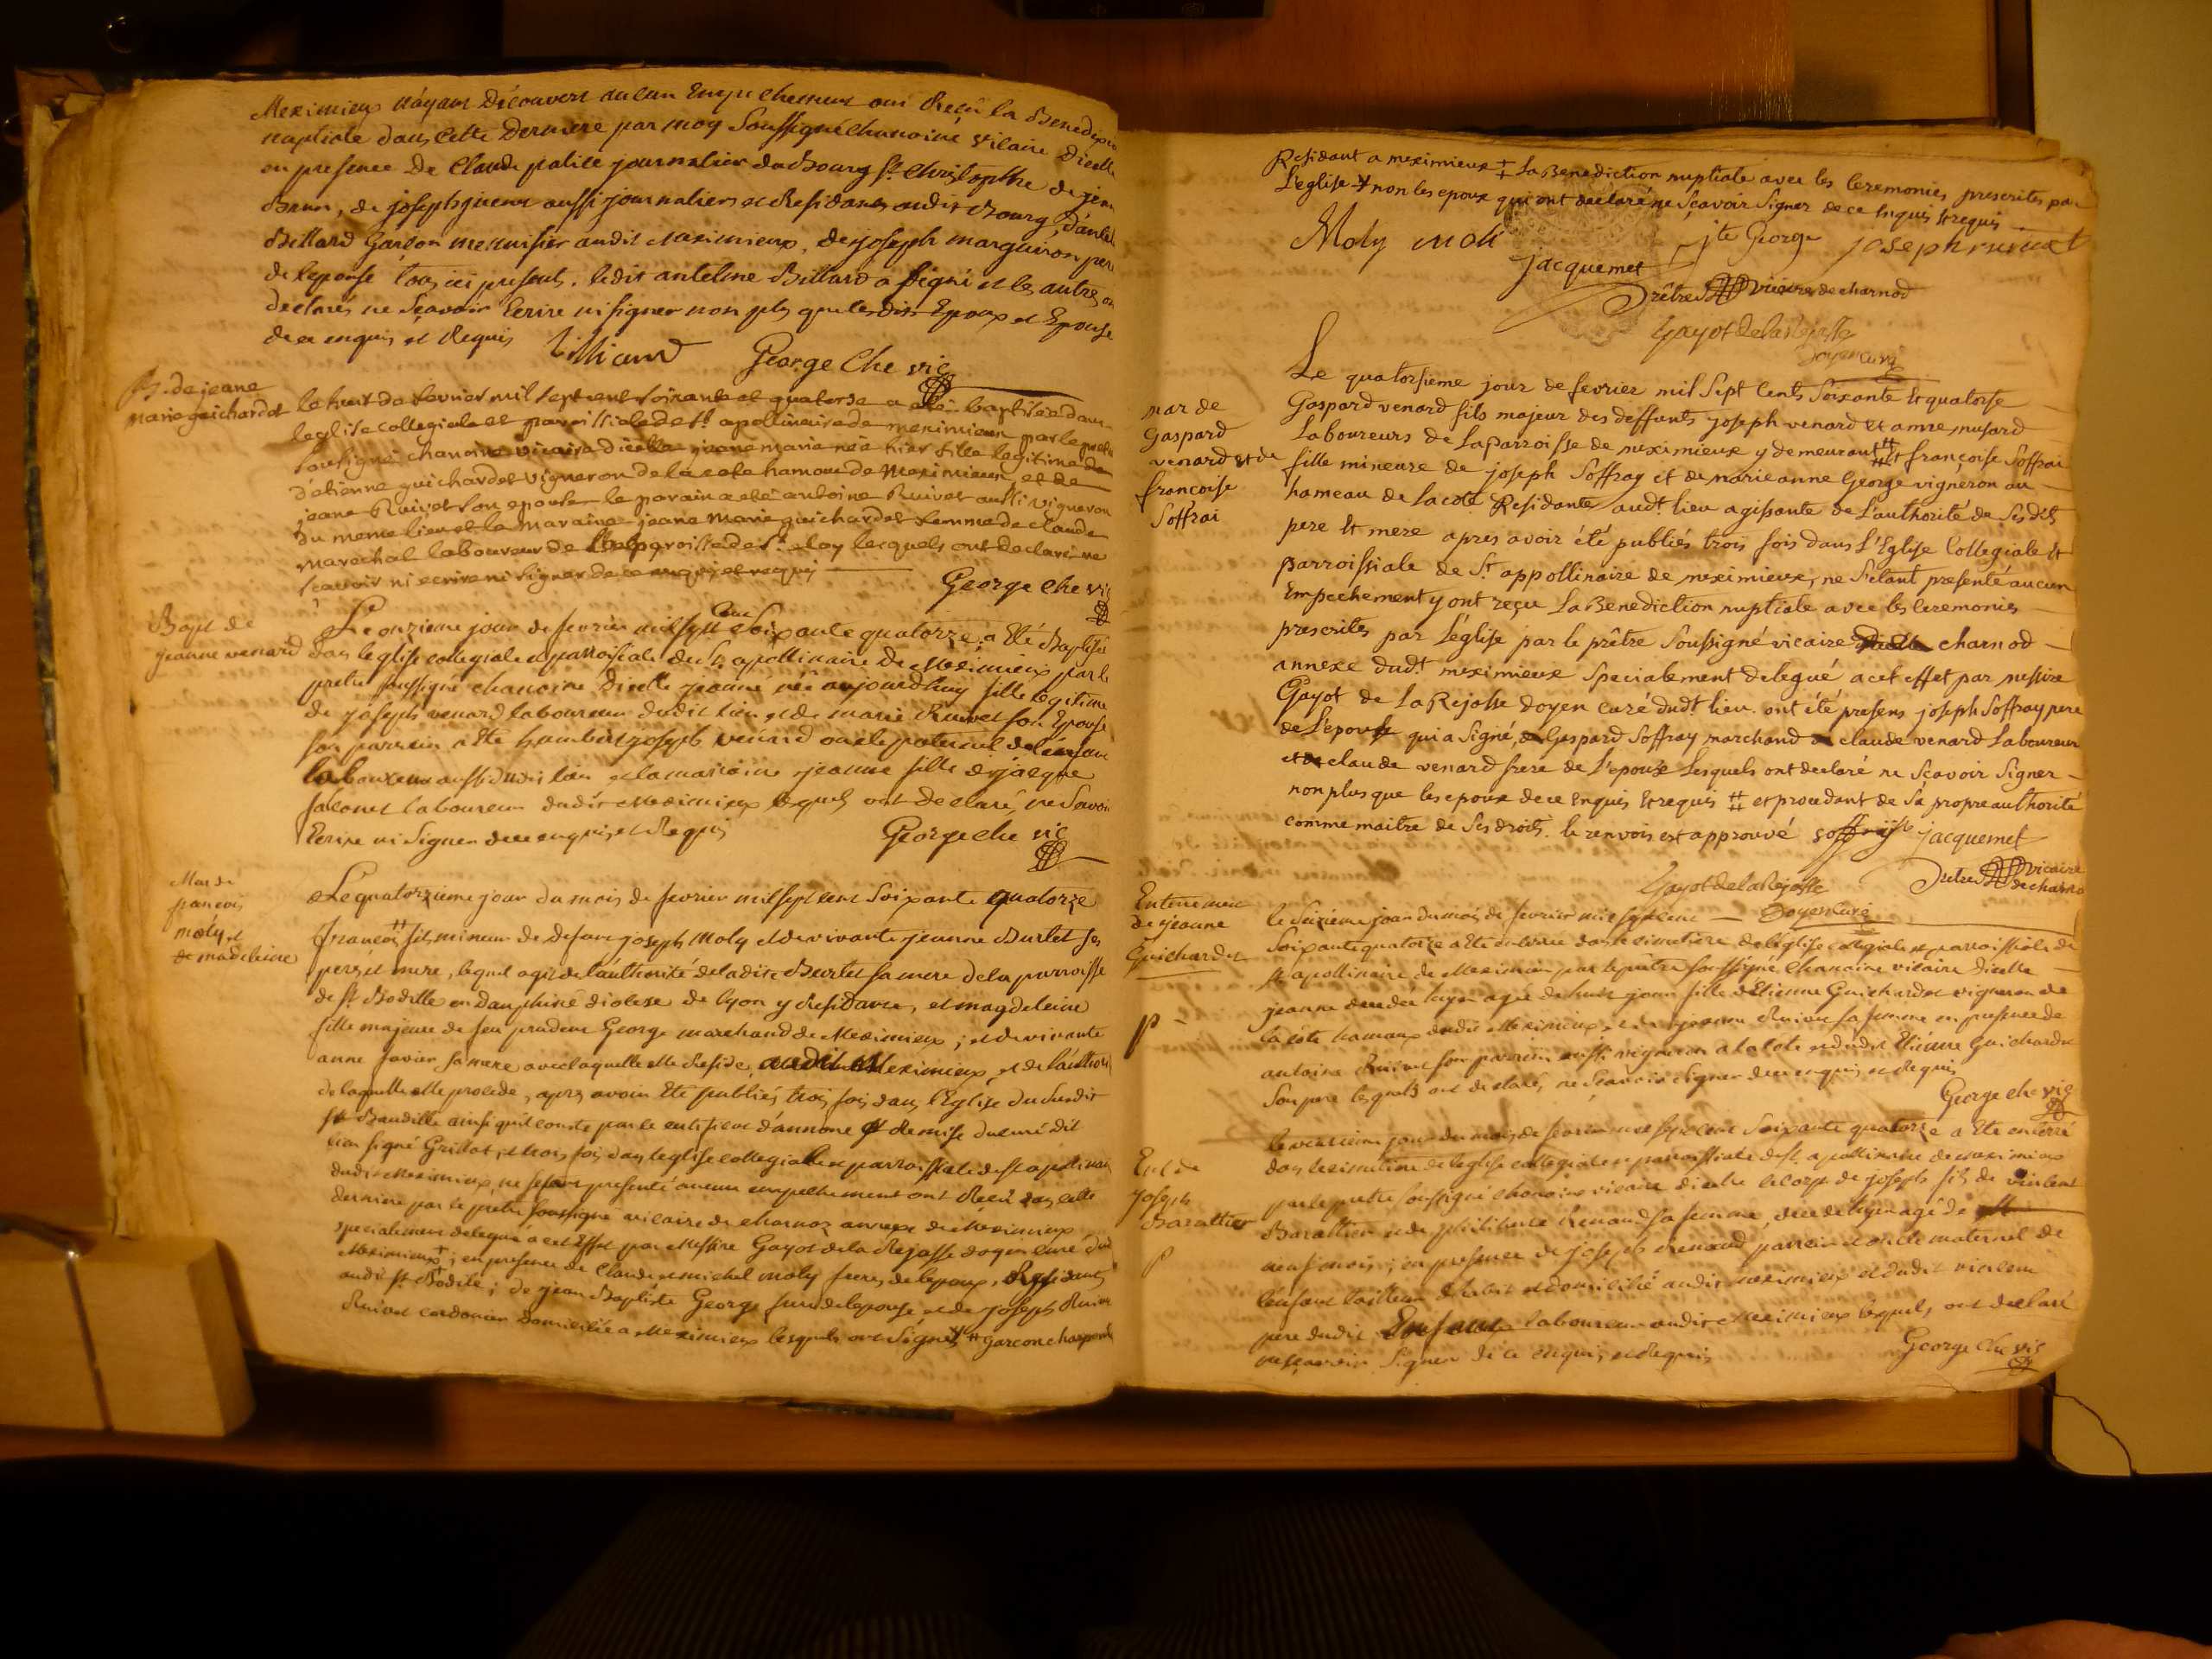 Meximieux n'ayant Découvert aucun Empechement ont Reçu la Benedixion
nuptiale dans cette Derniere par moy Soussigné chanoine vicaire D'icelle
en presence De Claude palice journalier du Bourg st Christophe de jean
Brun, de joseph aussi journaliers et Residants audit Bourg, D'antel
Billard Garçon menuisier audit Meximieux, de joseph marguiron pere
de l'epouse tous ici presents. ledit antelme Billard a signé et les autres on
declarés ne Sçavoir Ecrire ni signer non plus que lesdits Epoux et Epouse
de ce enquis et Requis
Billiard George Che vic
B. de jeane
marie guichardet
le huit de fevrier mil sept cent soixante et quatorse a eté baptisée dans
leglise collegiale et paroissiale de st apollinaire de meximieux par le pretre
sousigné chanoine vicaire d'icelle jeane marie née hier fille legitime de
d'etienne guichardet vigneron de la cote hamau de Meximieux et de
jeane Ruivet son epouse le parain a eté antoine Ruivet aussi vigneron
du meme lieu et la maraine jeane Marie guichardet femme de claude
marechal laboureur de paroisse de st eloy lesquels ont declaré ne
scavoir ni ecrire ni signer de ce enquis et requis
George che vic
Bapt de
jeanne venard
Le onzieme jour de fevrier mil sept cent Soixante quatorze a Eté Baptisé
dans leglise collegiale et parroissiale de St apollinaire De Meximieux par le
pretre soussigné chanoine D'icelle jeanne née aujourdhuy fille legitime
de joseph venard laboureur dudit lieu et de marie Ruivet son Epouse
son parrein a Eté humbert joseph venard oncle paternel de l'enfant
laboureur aussi dudit lieu et la marraine jeanne fille de jacque
falconet laboureur dudit Meximieux lesquels ont declaré ne Savoir
Ecrire ni Signer de ce enquis et Requis
George che vic
Mar de
francois
moly et
de madeleine
Le quatorzieme jour du mois de fevrier mil sept cent Soixante quatorze
françois # fils mineur de defunt joseph Moly et de vivante jeanne Burlet ses
perre et mere, lequel agit de l'authorité de ladite Burlet sa mere de la parroisse
de st Bodille en Dauphiné diocese de lyon y Residante, et magdeleine
fille majeure de feu prudent George marchand de Meximieux ; et de vivante
anne favier sa mere avec laquelle elle Reside, audit Meximieux, et de l'authori
de laquelle elle procede, apres avoir Eté publiés trois fois dans l'Eglise du Susdit
st Baudille ainsi qu'il conste par le certificat d'annonce et Remise du curé dit
lieu signé Grillot, et trois fois dans leglise collegiale et parroissiale de st apolinaire
dudit Meximieux, ne setant presenté aucun empechement ont Reçu dans cette
derniere par le pretre soussigné vicaire de charnoz annexe de Meximieux
specialement delegué a cet Effet par Messire Gayot de la Rejasse doyen curé dud
Meximieux ; en presence de Claude et michel moly freres de lepoux, Residants
audit st Bodile ; de jean Baptiste George frere de lepouse et de joseph Ruivet
Ruivet cordonier Domicilié a Meximieux lesquels ont Signés # garcon charpenti
Residant a meximieux ‡ La Benediction nuptiale avec les Ceremonies prescrites par
L'eglise # non les epoux qui ont declaré ne Sçavoir Signer de ce Enquis & requis
Moly moli jte George joseph ruivet
jacquemet
Prêtre vicaire de charnod
Gayot de la Rejasse
Doyen curé
mar de
Gaspard
venard et de
francoise
Soffrai
Le quatorsieme jour de fevrier mil Sept Cents Soixante & quatorse
Gaspard venard fils majeur des deffunts joseph venard & anne musard
Laboureurs de La parroisse de meximieux y demeurant # & françoise Soffrai
fille mineure de joseph Soffray et de marie anne George vigneron au
hameau de la coté Residante audt. lieu agissante de L'authorité de Ses dits
pere & mere apres avoir été publiés trois fois dans L'Eglise Collegiale &
parroissiale de St. appollinaire de meximieux, ne S'étant presenté aucun
Empechement y ont reçu La Benediction nuptiale avec les Ceremonies
prescrites par L'église par le prêtre Soussigné vicaire charnod
annexe dudt. meximieux Specialement delegué a cet effet par messire
Gayot de La Rejasse doyen curé dudt. lieu. ont été presens joseph Soffray pere
de L'epouse qui a Signé, Gaspard Soffray marchand claude venard Laboureur
et claude venard frere de L'epoux Lesquels ont declaré ne Scavoir Signer
non plus que les epoux de ce Enquis & requis # et procedant de Sa propre authorité
comme maitre de Ses droits. le renvois est approuvé soffray jacquemet
Gayot de la Rejasse Prêtre vicaire
Doyen Curé de charnod
Enterement
de jeanne
Guichardet
le Seizieme jour du mois de fevrier mil sept cent
Soixante quatorze a Eté enterrée dans le cimetiere de l'eglise collegiale et parroissiale de
st apollinaire de Meximieux par le prêtre soussigné Chanoine vicaire d'icelle
jeanne decedée hyer agée de huit jours fille d'Etienne Guichardet vigneron de
la côte hamaux dudit Meximieux et de jeanne Ruivet sa femme en presence de
antoine Ruivet son parrein aussi vigneron a la cote et dudit Etienne Guichardet
Son pere lesquels ont declaré, ne Scavoir Signer de ce enquis et Requis
p
George che vic
Ent de
joseph
Barattier
p
le jour du mois de fevrier mil sept cent Soixante quatorze a Eté enterré
dans le cimetiere de leglise collegiale et parroissiale de st apollinaire de meximieux
par le pretre soussigné chanoine vicaire d'icelle le corps de joseph fils de vincent
Barattier et de philiberte Renaud sa femme, decedé hyer agé de
neuf mois ; en presence de joseph Renaud parrein et oncle maternel de
lenfant tailleur d'habit et domicilié audit meximieux et dudit vincent
pere dudit Enfant laboureur audit Meximieux lesquels ont declaré
ne sçavoir Signer de ce enquis et Requis
George Che vic